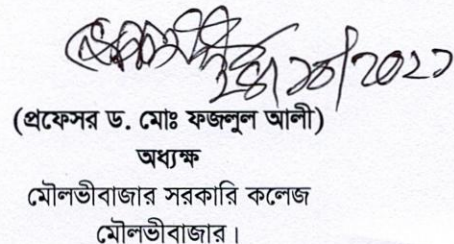 ১৩/২০২১
(প্রফেসর ড. মোঃ ফজলুল আলী)
অধ্যক্ষ
মৌলভীবাজার সরকারি কলেজ
মৌলভীবাজার।